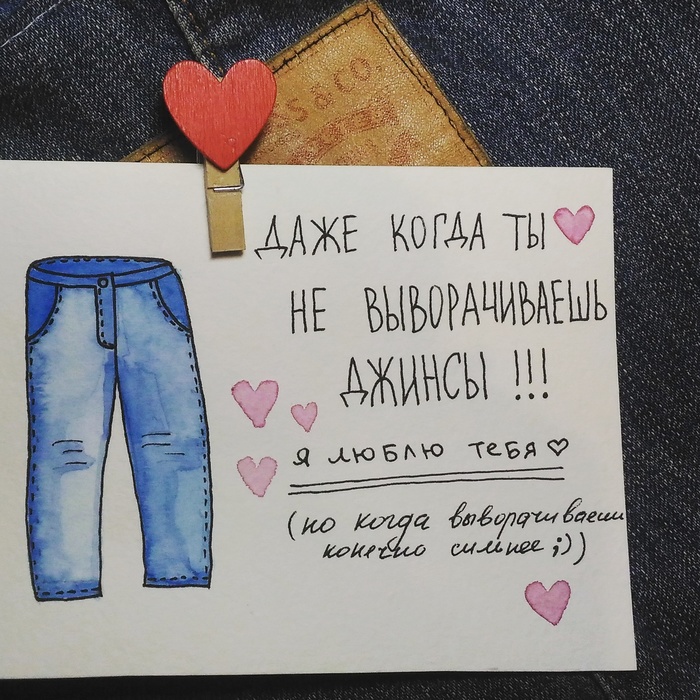 S & CO.
ДАЖЕ КОГДА ТЫ
НЕ ВЫВОРАЧИВАЕШЬ
ДЖИНСЫ !!!
я люблю тебя
(но когда выворачиваешь
конечно сильнее ;))